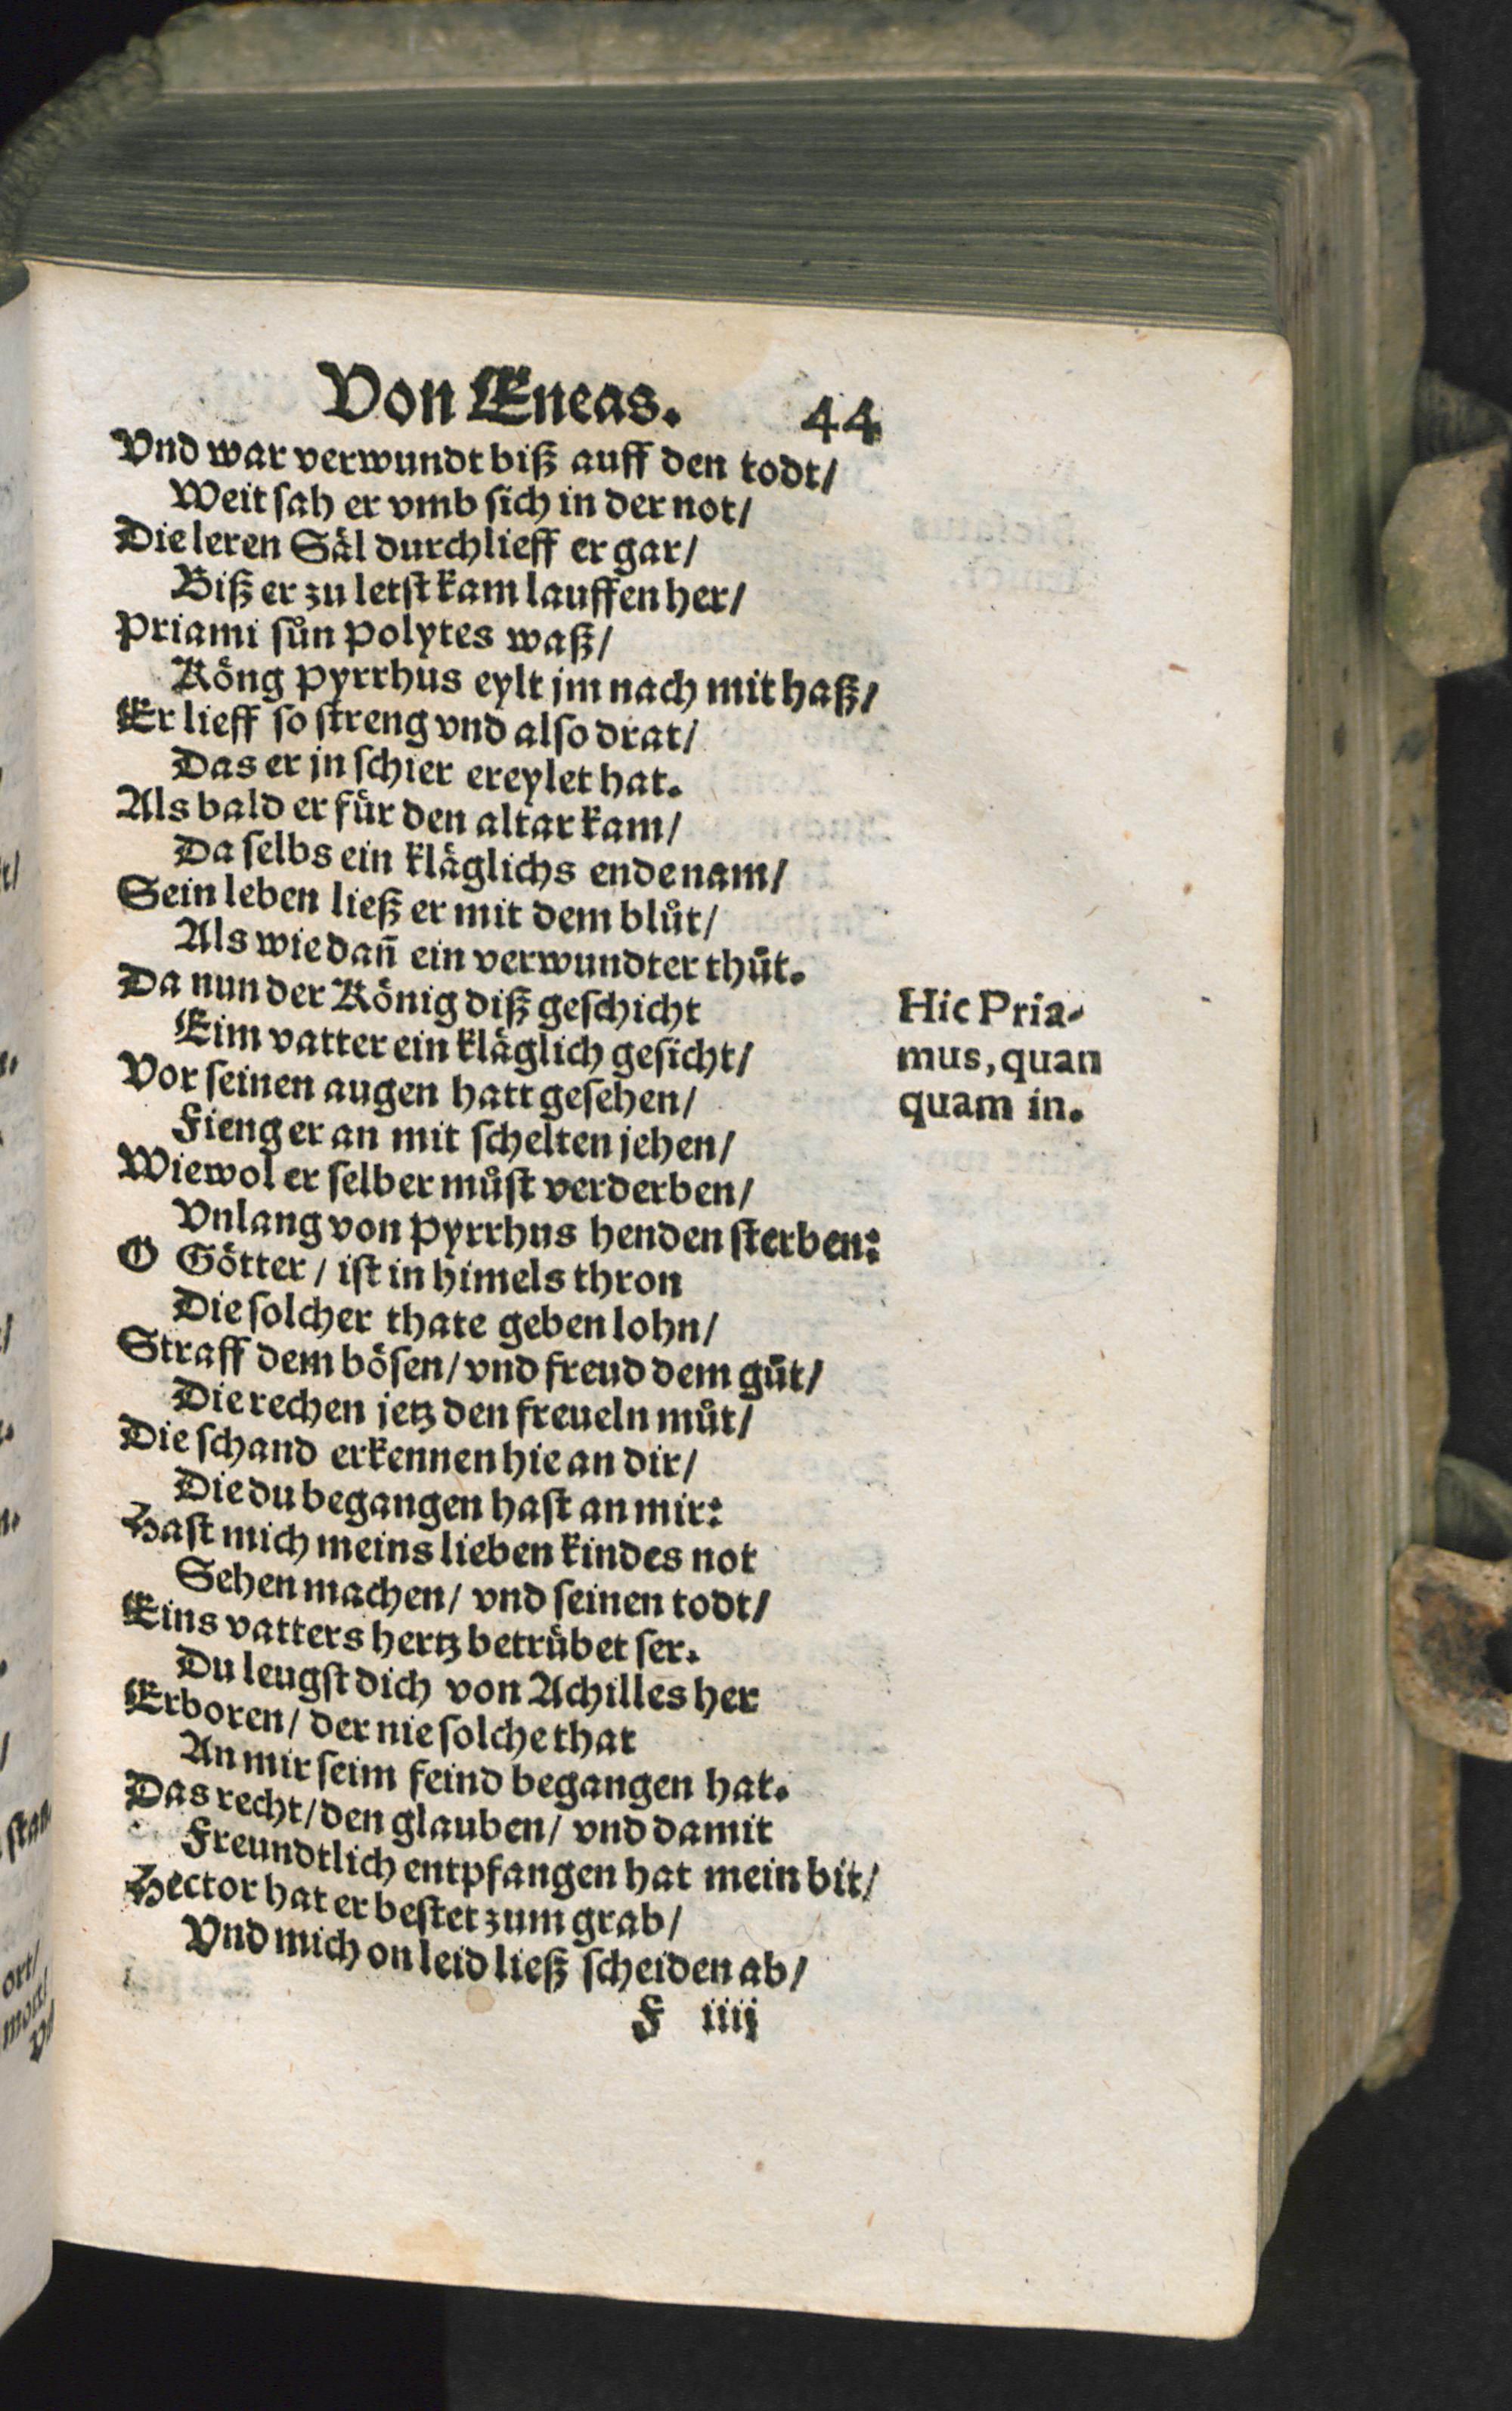 Von Æneas. 44
Vnd war verwundt biß auff den todt/
Weit sah er vmb sich in der not/
Die leren Säl durchlieff er gar/
Biß er zu letst kam lauffen her/
Priami sůn Polytes waß/
Köng Pyrrhus eylt jm nach mit haß/
Er lieff so streng vnd also drat/
Das er jn schier ereylet hat.
Als bald er für den altar kam/
Da selbs ein kläglichs ende nam/
Sein leben ließ er mit dem blůt/
Als wie dañ ein verwundter thůt.
Da nun der König diß geschicht
Eim vatter ein kläglich gesicht/
Vor seinen augen hatt gesehen/
Fieng er an mit schelten jehen/
Wiewol er selber můst verderben/
Vnlang von Pyrrhus henden sterben:
O Götter/ ist in himels thron
Die solcher thate geben lohn/
Straff dem bösen/ vnd freud dem gůt/
Die rechen jetz den freueln můt/
Die schand erkennen hie an dir/
Die du begangen hast an mir:
Hast mich meins lieben kindes not
Sehen machen/ vnd seinen todt/
Eins vatters hertz betrübet ser.
Du leugst dich von Achilles her
Erboren/ der nie solche that
An mir seim feind begangen hat.
Das recht/ den glauben/ vnd damit
Freundtlich entpfangen hat mein bit/
Hector hat er bestet zum grab/
Vnd mich on leid ließ scheiden ab/
F iiij
Hic Pria-
mus, quan
quam in.